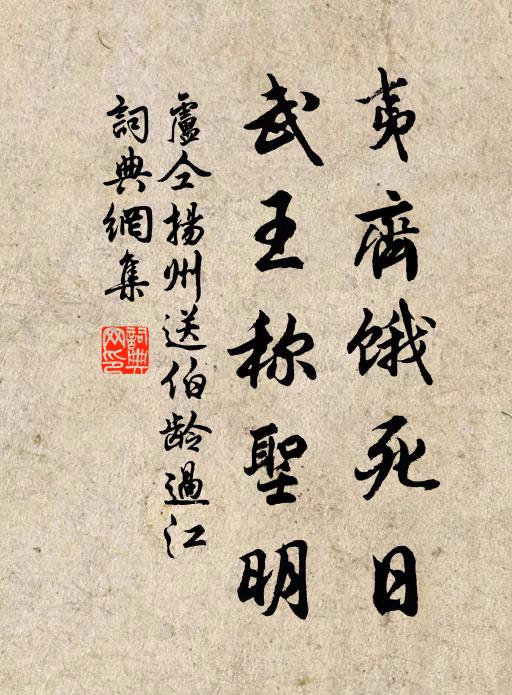 夷齊餓死日
武王称聖明
盧仝揚州送伯齡過江
詞典網集
詞典
网印